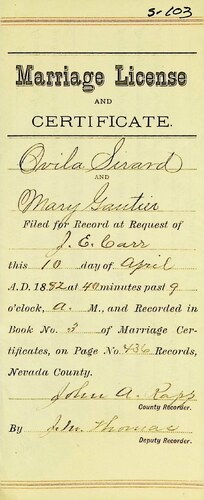 S-103
Marriage License
AND
CERTIFICATE.
Ovila Sirard
AND
Mary Gautier
Filed for Record at Request of
J. E. Carr
this 10 day of April
A.D. 1892 at 40 minutes past 9
o'clock, a. M., and Recorded in
Book No. 3 of Marriage Cer-
tificates, on Page No 436 Records,
Nevada County.
John A. Rapp
County Recorder.
By Jno. Thomas
Deputy Recorder.